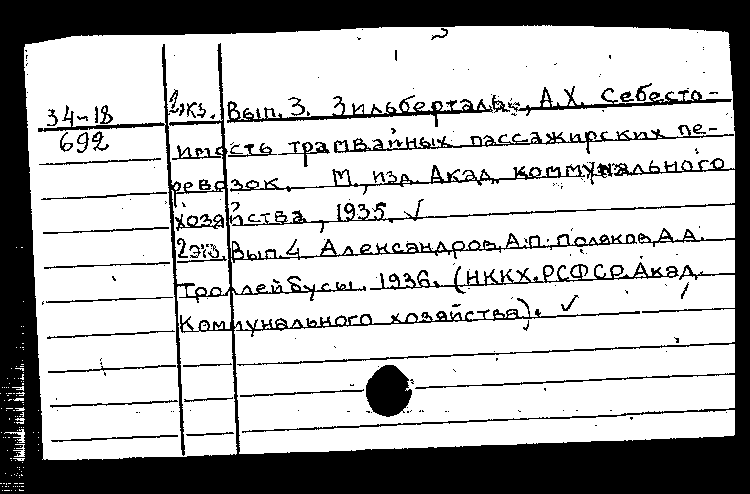 34-18
692
2экз. Вып. 3. Зильберталь, А.Х. Себесто-
имость трамвайных пассажирских пе-
ревозок. М., изд. Акад. коммунального
хозяйства, 1935. ✓
2экз. Вып. 4 Александров, А.П; Поляков, А.А.
Троллейбусы. 1936. (НККХ.РСФСР.Акад.
Коммунального хозяйства). ✓